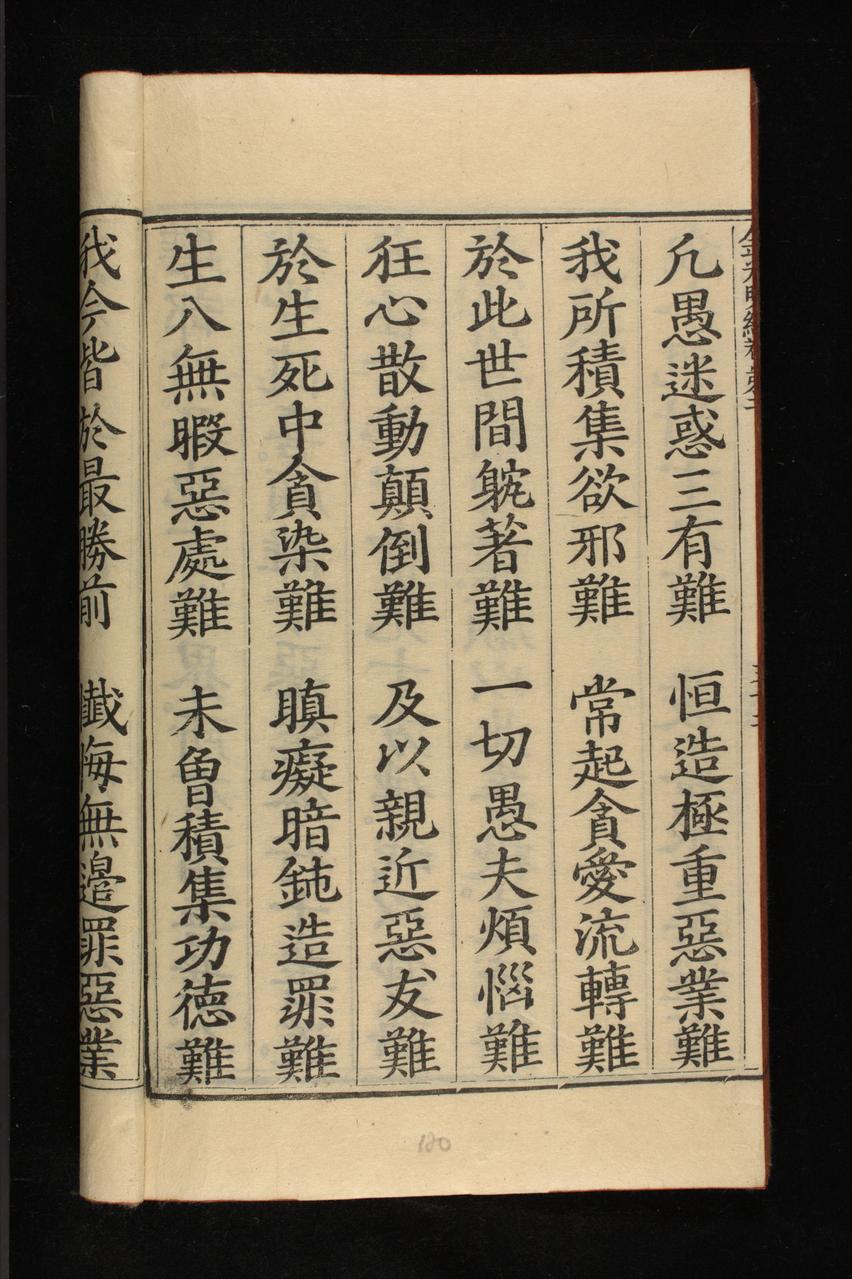 金光明經卷第二
凢愚迷惑三有難　恒造極重惡業難
我所積集欲邪難　常起貪愛流轉難
於此世間躭著難　一切愚夫煩惱難
狂心散動顛倒難　及以親近惡友難
於生死中貪染難　瞋癡暗鈍造罪難
生八無暇惡處難　未曾積集功德難
我今皆於最勝前　懴悔無邉罪惡業
180